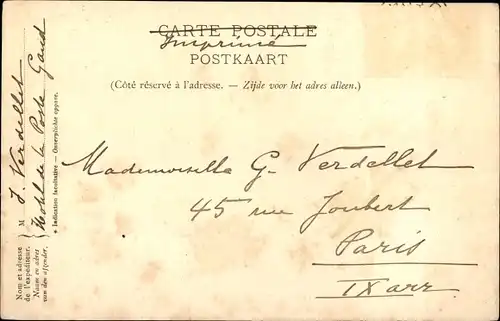 CARTE POSTALE
Imprimé
POSTKAART
(Côté réservé à l'adresse. — Zijde voor het adres alleen.)
Mademoiselle G. Verdellet
45 rue Joubert
Paris
IX arr
M J. Verdellet
Hotel de la Poste Gand
* Indication facultative — Onverplichte opgave.
Nom et adresse
de l'expéditeur.
Naam en adres
van den afzender.